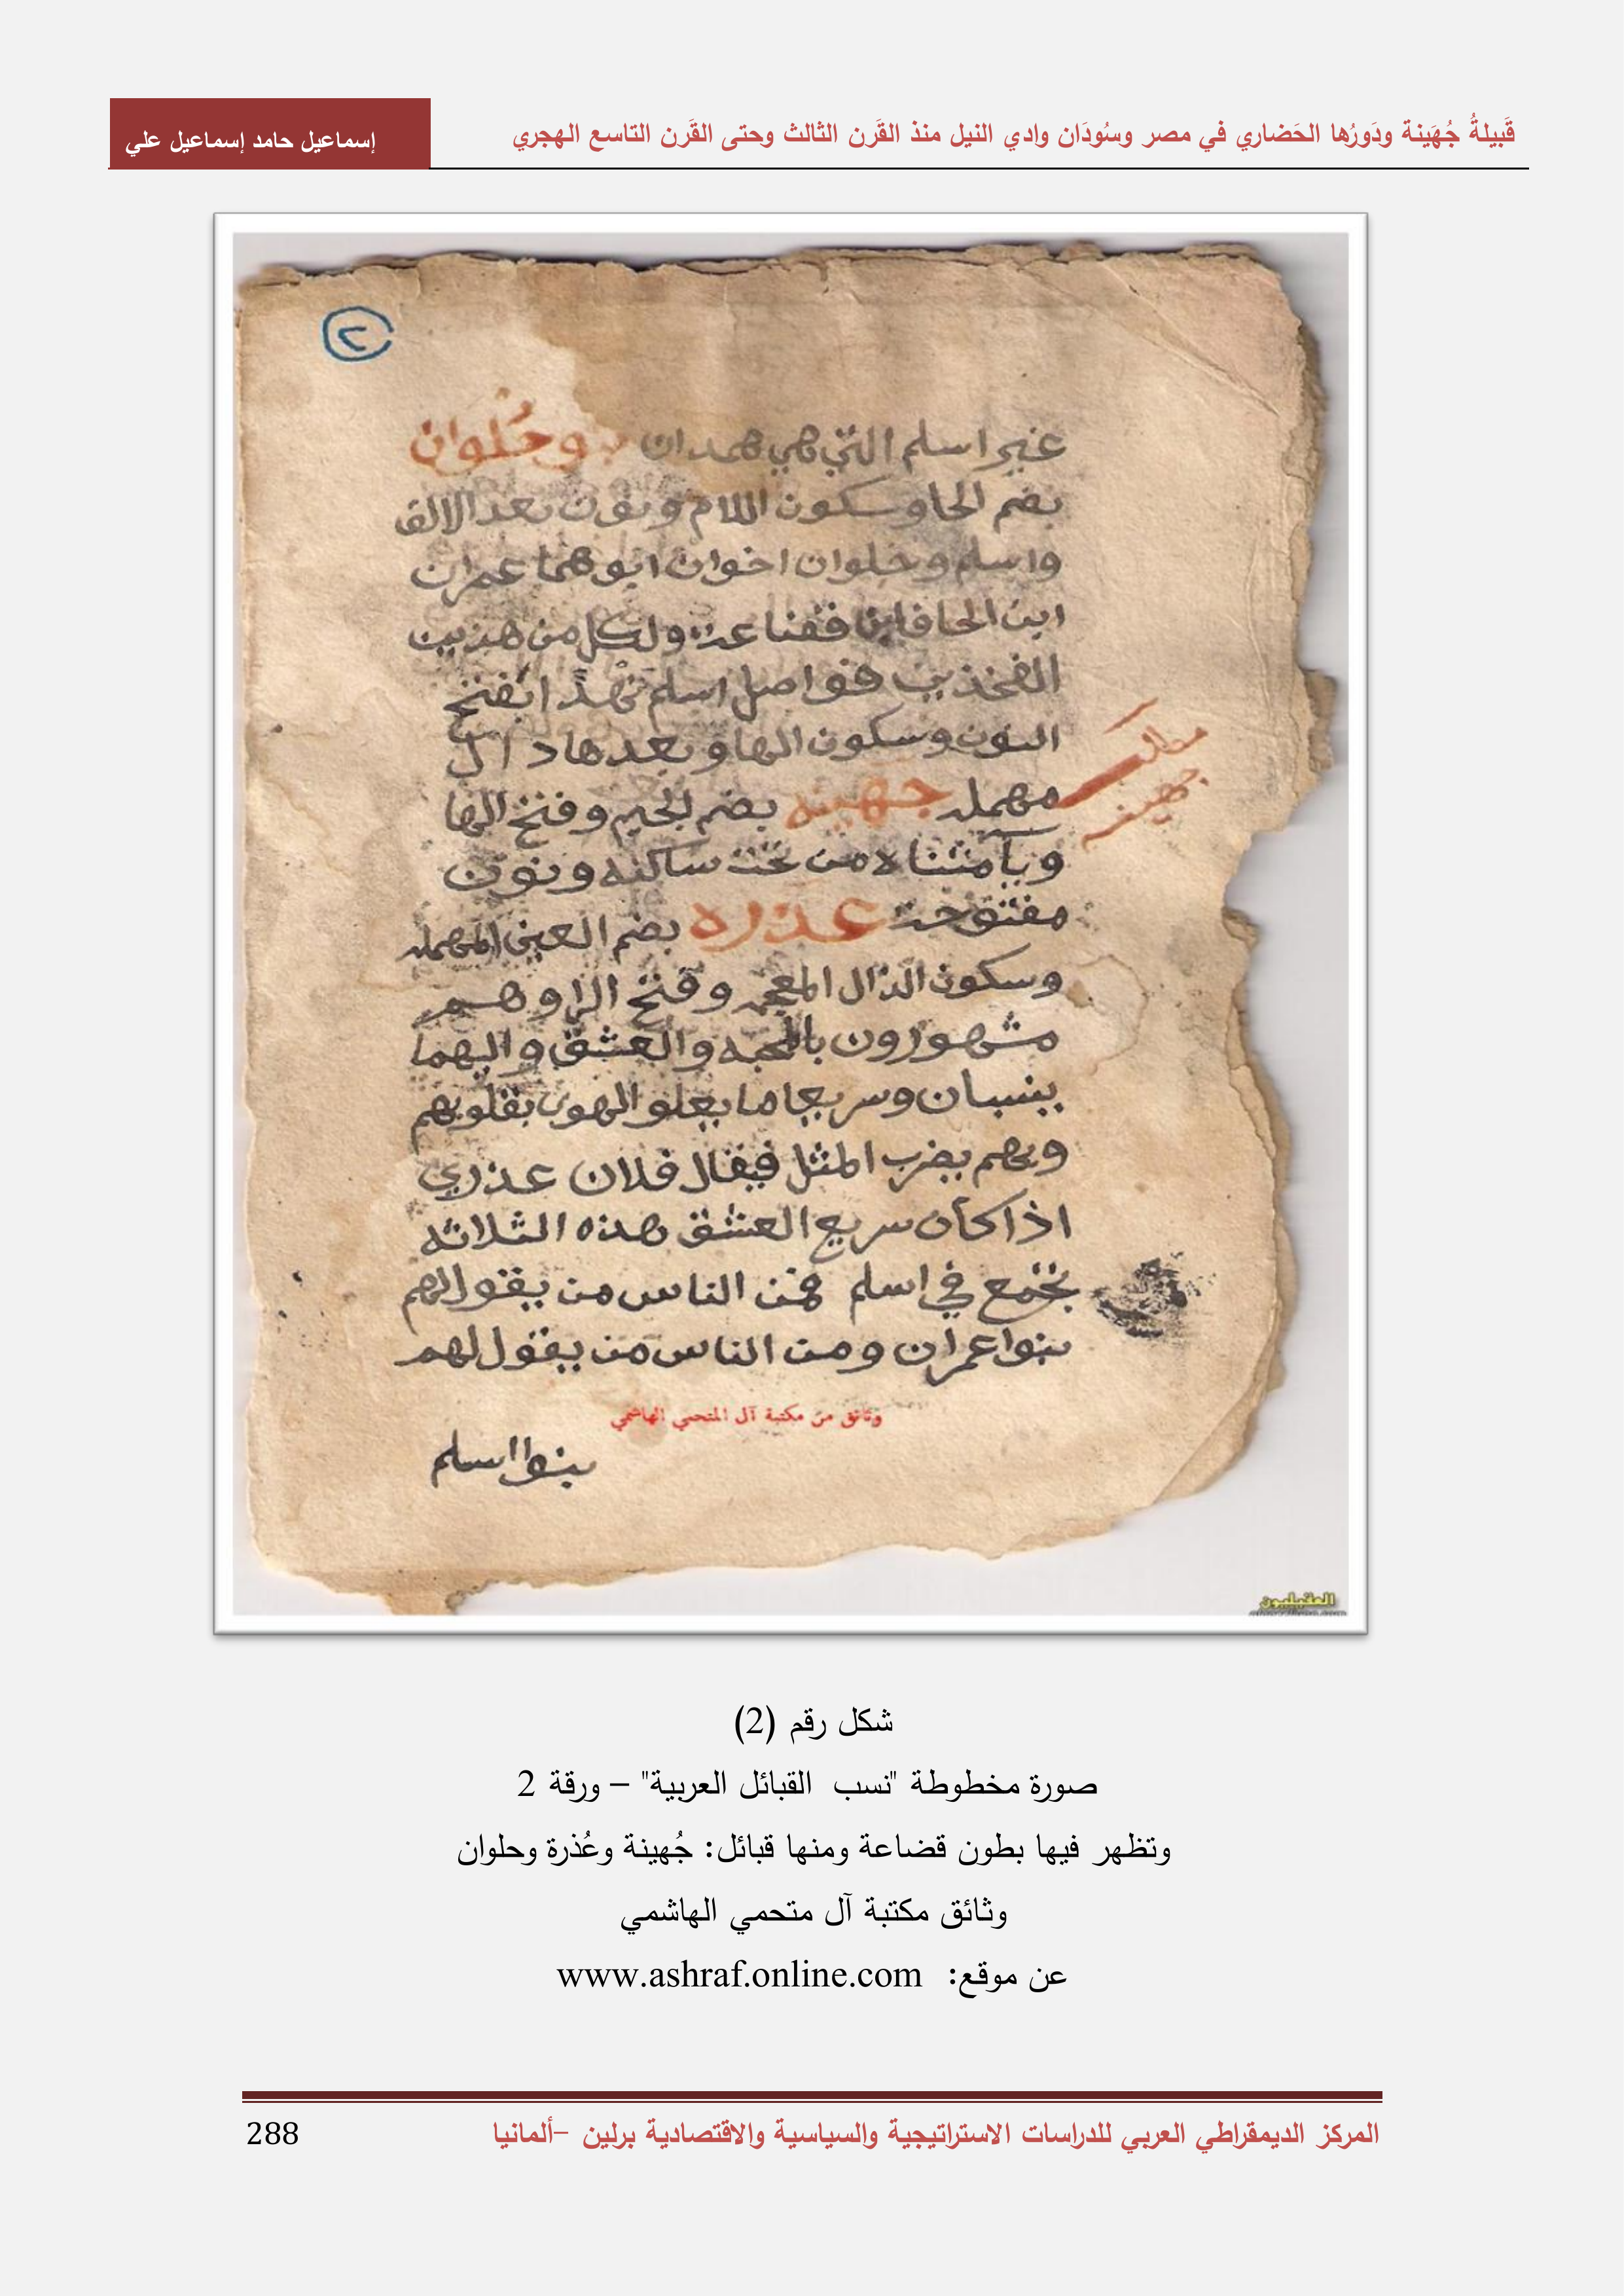 قَبيلةُ جُهَينة ودَورُها الحَضاري في مصر وسُودَان وادي النيل منذ القَرن الثالث وحتى القَرن التاسع الهجري
إسماعيل حامد إسماعيل علي
٢
غير اسلم التي هي همدان وحُلوان
بضم الحا وسكون اللام ونون بعد الالف
واسلم وحلوان اخوان ابوهما عمران
ابن الحاف ابن قضاعه ولكل من هذين
الفخذين فواصل اسلم نهدًا بفتح
النون وسكون الها وبعدها دال
مهمله جهينه بضم الجيم وفتح الها
ويآ مثناه من تحت ساكنه ونون
مفتوحه عذره بضم العين المهمله
وسكون الذال المعجمه وفتح الرا وهم
مشهورون بالمحبه والعشق واليهما
ينسبان وسريعا ما يعلو الهوى بقلوبهم
وبهم يضرب المثل فيقال فلان عذري
اذا كان سريع العشق هذه الثلاثه
تجتمع في اسلم فمن الناس من يقول لهم
بنوا عمران ومن الناس من يقول لهم
بنوا اسلم
مطلب
جهينه
وثائق من مكتبة آل المتحمي الهاشمي
العقيليون
شكل رقم (2)
صورة مخطوطة "نسب القبائل العربية" – ورقة 2
وتظهر فيها بطون قضاعة ومنها قبائل: جُهينة وعُذرة وحلوان
وثائق مكتبة آل متحمي الهاشمي
عن موقع: www.ashraf.online.com
المركز الديمقراطي العربي للدراسات الاستراتيجية والسياسية والاقتصادية برلين –ألمانيا
288